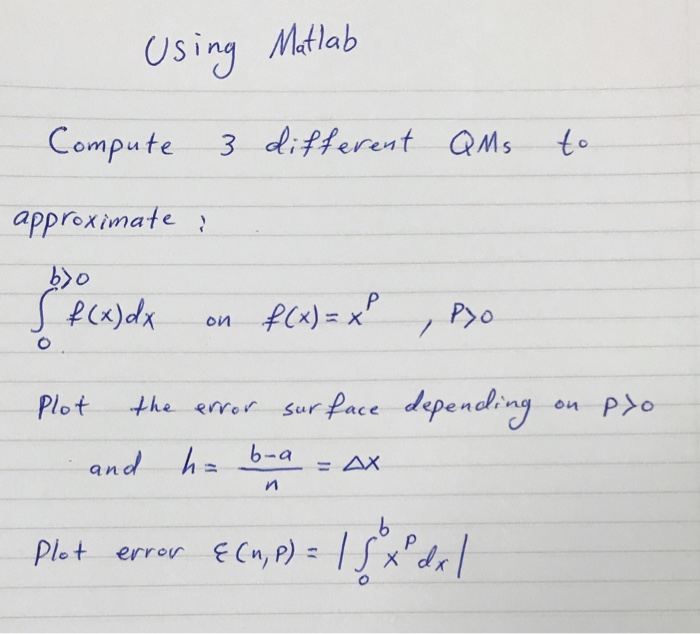 Using Matlab
Compute 3 different QMs to
approximate :
∫₀^{b>0} f(x)dx on f(x) = x^p , P>0
Plot the error surface depending on p>0
and h = (b-a)/n = Δx
Plot error ε(n,p) = |∫₀^b x^p dx|